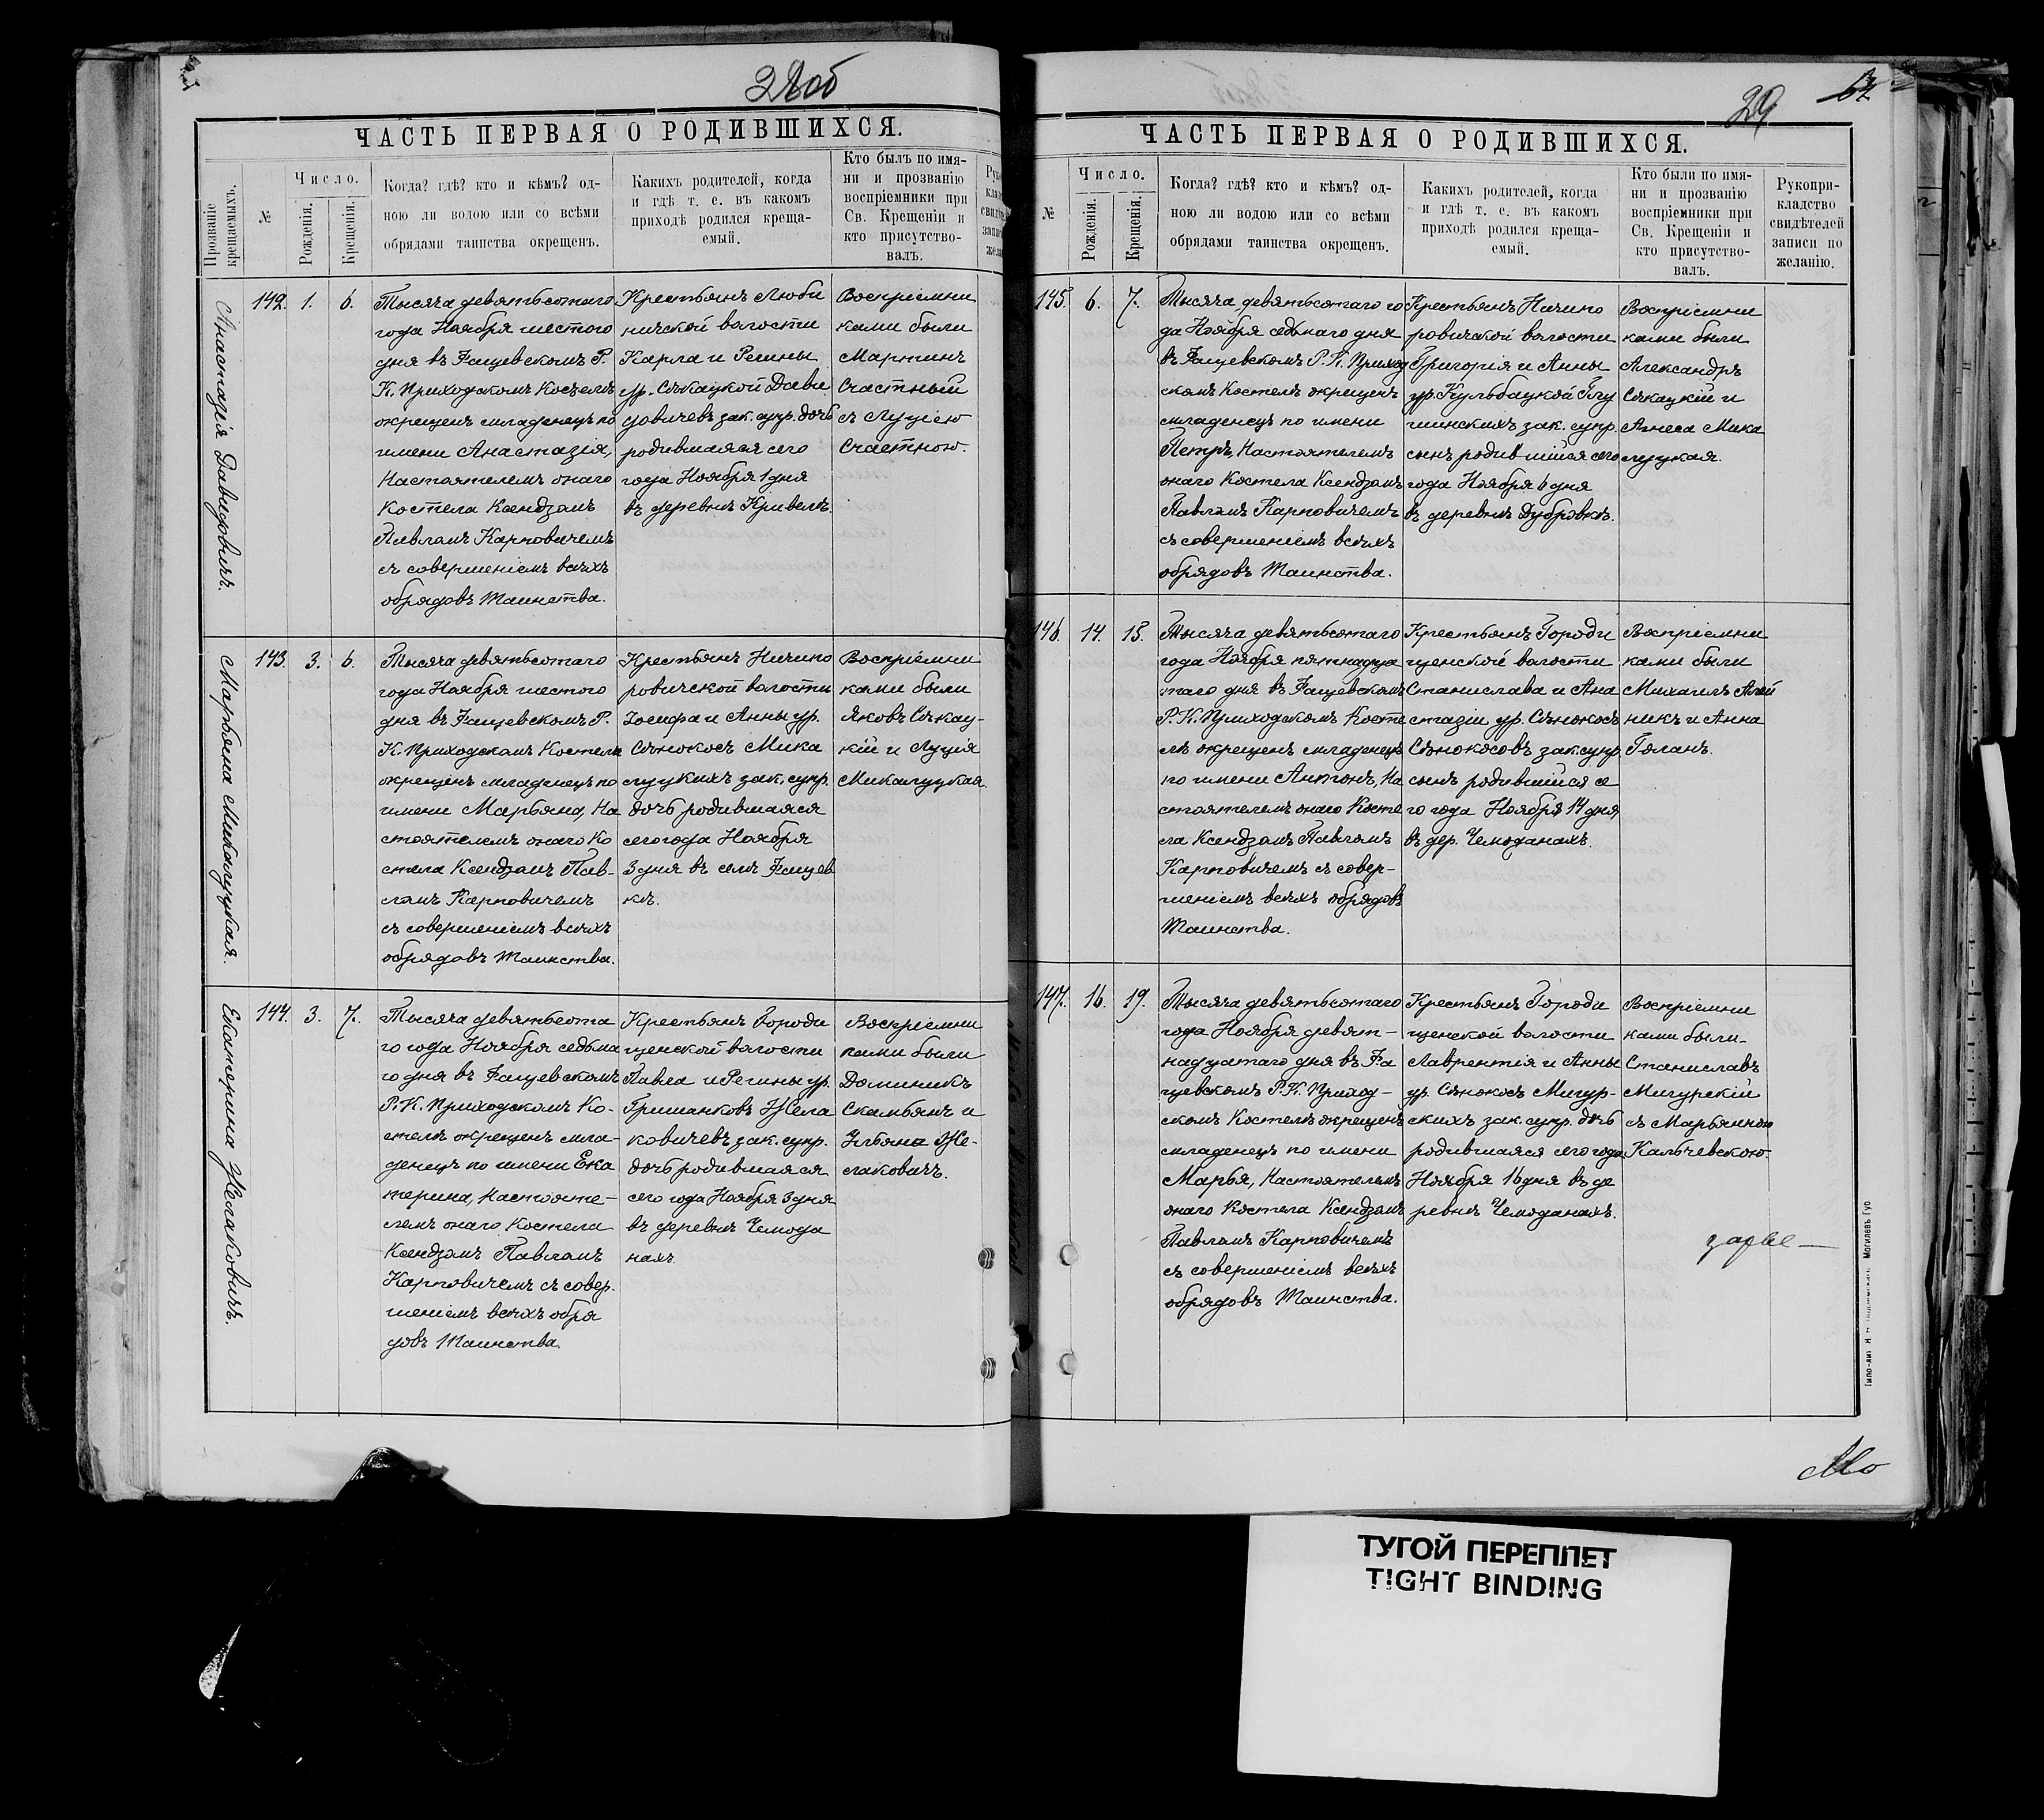 28об
ЧАСТЬ ПЕРВАЯ О РОДИВШИХСЯ.
Прозваніе крещаемыхъ.
№
Число.
Рожденія.
Крещенія.
Когда? гдѣ? кто и кѣмъ? од-
ною ли водою или со всѣми
обрядами таинства окрещенъ.
Какихъ родителей, когда
и гдѣ т. е. въ какомъ
приходѣ родился креща-
емый.
Кто былъ по имя-
ни и прозванію
воспріемники при
Св. Крещеніи и
кто присутство-
валъ.
Анастазія Давидовичъ.
142. 1. 6.
Тысяча девятьсотаго
года Ноября шестого
дня въ Фащевскомъ Р.
К. Приходскомъ Костелѣ
окрещенъ младенецъ по
имени Анастазія,
Настоятелемъ онаго
Костела Ксендзомъ
Павломъ Карповичемъ
съ совершеніемъ всѣхъ
обрядовъ Таинства.
Крестьянъ Люби
ничской волости
Карла и Регины
ур. Сѣкацкой Дави
довичевъ зак. супр. дочь
родившаяся сего
года Ноября 1 дня
въ деревнѣ Кривелѣ.
Воспріемни
ками были
Мартинъ
Счастный
съ Луціею
Счастною.
Марьяна Микалуцкая.
143. 3. 6.
Тысяча девятьсотаго
года Ноября шестого
дня въ Фащевскомъ Р.
К. Приходскомъ Костелѣ
окрещенъ младенецъ по
имени Марьяна, На
стоятелемъ онаго Ко
стела Ксендзомъ Пав-
ломъ Карповичемъ
съ совершеніемъ всѣхъ
обрядовъ Таинства.
Крестьянъ Ничипо
ровичской волости
Іосифа и Анны ур.
Сѣнокосъ Мика
луцкихъ зак. супр.
дочь родившаяся
сего года Ноября
3 дня въ селѣ Фащев
кѣ.
Воспріемни
ками были
Яковъ Сѣкац-
кій и Луція
Микалуцкая.
Екатерина Желаковичъ.
144. 3. 7.
Тысяча девятьсота
го года Ноября седьма
го дня въ Фащевскомъ
Р. К. Приходскомъ Ко-
стелѣ окрещенъ мла-
денецъ по имени Ека
терина, Настояте-
лемъ онаго Костела
Ксендзомъ Павломъ
Карповичемъ съ совер-
шеніемъ всѣхъ обря
довъ Таинства.
Крестьянъ Городи
щенской волости
Павла и Регины ур.
Гришанковъ Жела
ковичевъ зак. супр.
дочь родившаяся
сего года Ноября 3 дня
въ деревнѣ Чемода
нахъ.
Воспріемни
ками были
Доминикъ
Скамьянъ и
Ульяна Же-
лаковичъ.
29
ЧАСТЬ ПЕРВАЯ О РОДИВШИХСЯ.
№
Число.
Рожденія.
Крещенія.
Когда? гдѣ? кто и кѣмъ? од-
ною ли водою или со всѣми
обрядами таинства окрещенъ.
Какихъ родителей, когда
и гдѣ т. е. въ какомъ
приходѣ родился креща-
емый.
Кто были по имя-
ни и прозванію
воспріемники при
Св. Крещеніи и
кто присутство-
валъ.
Рукопри-
кладство
свидѣтелей
записи по
желанію.
145. 6. 7.
Тысяча девятьсотаго го
да Ноября седьмаго дня
въ Фащевскомъ Р. К. Приход
скомъ Костелѣ окрещенъ
младенецъ по имени
Петръ, Настоятелемъ
онаго Костела Ксендзомъ
Павломъ Карповичемъ
съ совершеніемъ всѣхъ
обрядовъ Таинства.
Крестьянъ Ничипо
ровичской волости
Григорія и Анны
ур. Кульбацкой Глу
шинскихъ зак. супр.
сынъ родившійся сего
года Ноября 6 дня
въ деревнѣ Дубровкѣ.
Воспріемни
ками были
Александръ
Сѣкацкій и
Агнеса Мика
луцкая.
146. 14. 15.
Тысяча девятьсотаго
года Ноября пятнадца
таго дня въ Фащевскомъ
Р. К. Приходскомъ Косте
лѣ окрещенъ младенецъ
по имени Антонъ, На
стоятелемъ онаго Косте
ла Ксендзомъ Павломъ
Карповичемъ съ совер-
шеніемъ всѣхъ обрядовъ
Таинства.
Крестьянъ Городи
щенской волости
Станислава и Ана
стазіи ур. Сѣнокосъ
Сѣнокосовъ зак. супр.
сынъ родившійся се
го года Ноября 14 дня,
въ дер. Чемоданахъ.
Воспріемни
ками были
Михаилъ Алей
никъ и Анна
Голанъ.
147. 16. 19.
Тысяча девятьсотаго
года Ноября девят-
надцатаго дня въ Фа
щевскомъ Р. К. Приход-
скомъ Костелѣ окрещенъ
младенецъ по имени
Марья, Настоятелемъ
онаго Костела Ксендзомъ
Павломъ Карповичемъ
съ совершеніемъ всѣхъ
обрядовъ Таинства.
Крестьянъ Городи
щенской волости
Лаврентія и Анны
ур. Сѣнокосъ Мигур-
скихъ зак. супр. дочь
родившаяся сего года
Ноября 16 дня въ де
ревнѣ Чемоданахъ.
Воспріемни
ками были
Станиславъ
Мигурскій
съ Марьянною
Кальчевскою.
Могилевъ Губ
ТУГОЙ ПЕРЕПЛЕТ
TIGHT BINDING